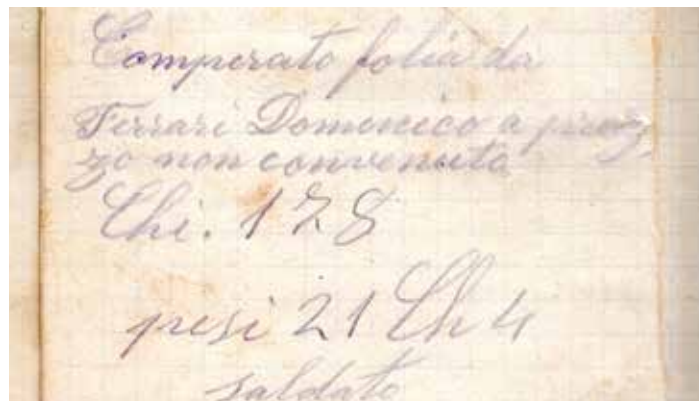 Comperato folia da
Ferrari Domenico a prez-
zo non convenuto
Chi. 178
pesi 21 Ch 4
saldato